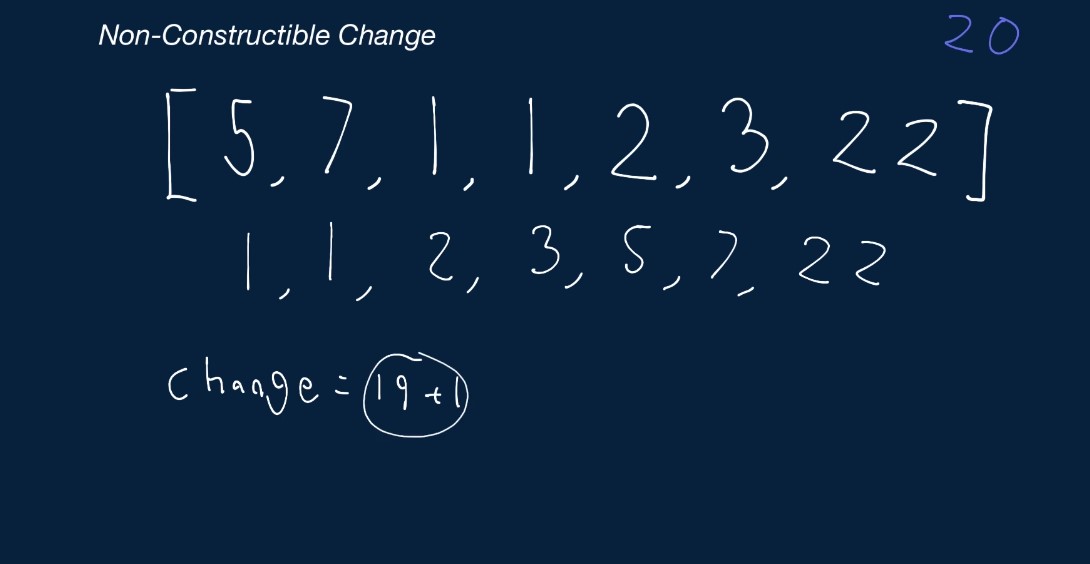 Non-Constructible Change
20
[5, 7, 1, 1, 2, 3, 22]
1, 1, 2, 3, 5, 7, 22
change = 19+1